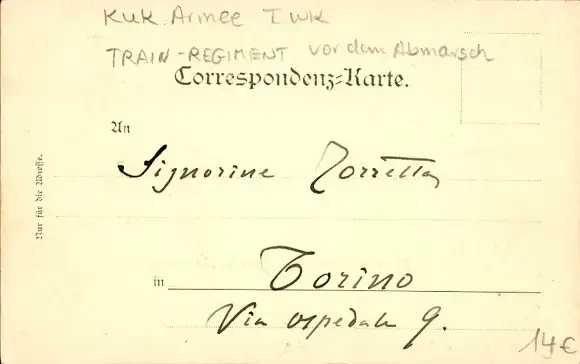 KuK Armee I WK
TRAIN-REGIMENT vor dem Abmarsch
Correspondenz-Karte.
An
Signorine Zorretta
Nur für die Adresse.
in Torino
Via ospedale 9.
14€